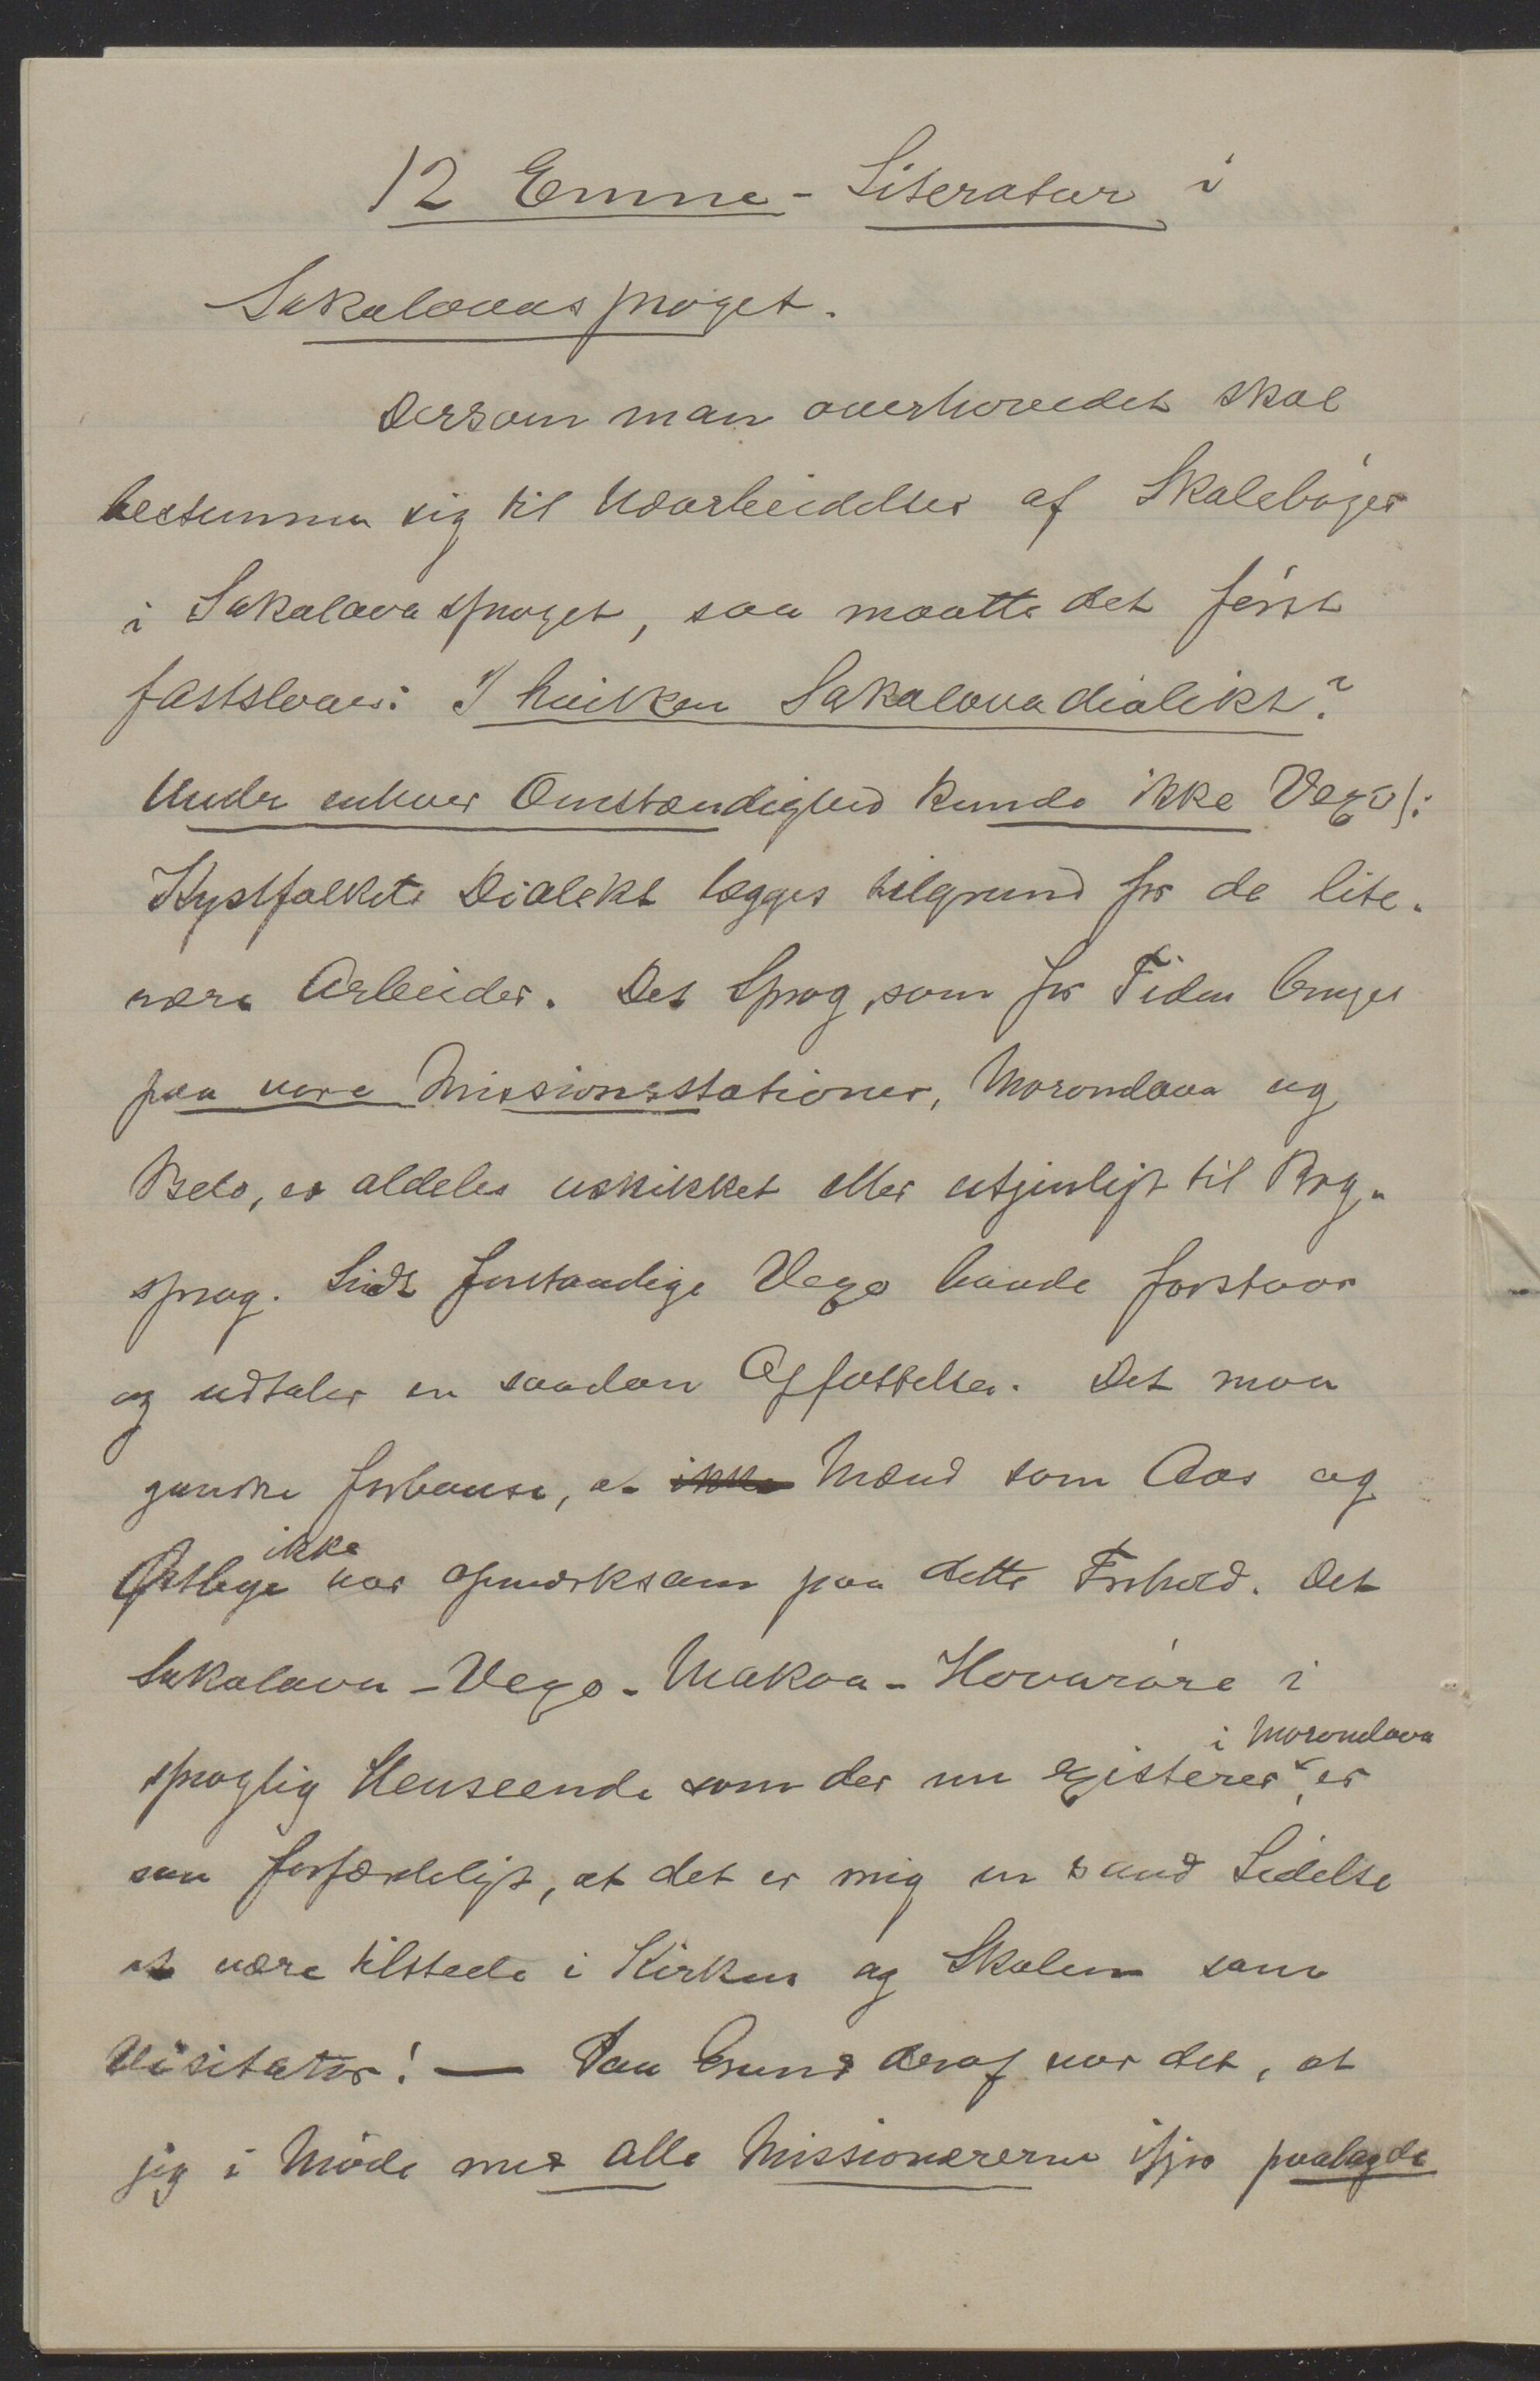 12 Emne - Literatur i
Sakalavasproget.
Dersom man overhovedet skal
bestemme sig til Udarbeidelser af Skolebøger
i Sakalavasproget, saa maatte det først
fastslaaes: I hvilken Sakalavadialekt?
Under enhver Omstændighed kunde ikke Vezo ɔ:
Kystfolkets Dialekt lægges tilgrund for de lite-
rære Arbeider. Det Sprog, som for Tiden bruges
paa vore Missionsstationer, Morondava og
Belo, er aldeles uskikket eller utjenligt til Bog-
sprog. Lidt forstandige Vezo baade forstaar
og udtaler en saadan Opfattelse. Det maa
ganske forbause, at Mænd som Aas og
Østbye ikke var opmærksom paa dette Forhold. Det
Sakalava - Vezo - Makoa - Hovarøre i
sproglig Henseende som der nu existerer i Morondava, er
saa forfærdeligt, at det er mig en sand Lidelse
at være tilstede i Kirken og Skolen som
Visitator! — Paa Grund deraf var det, at
jeg i Møde med alle Missionærerne ifjor paalagde